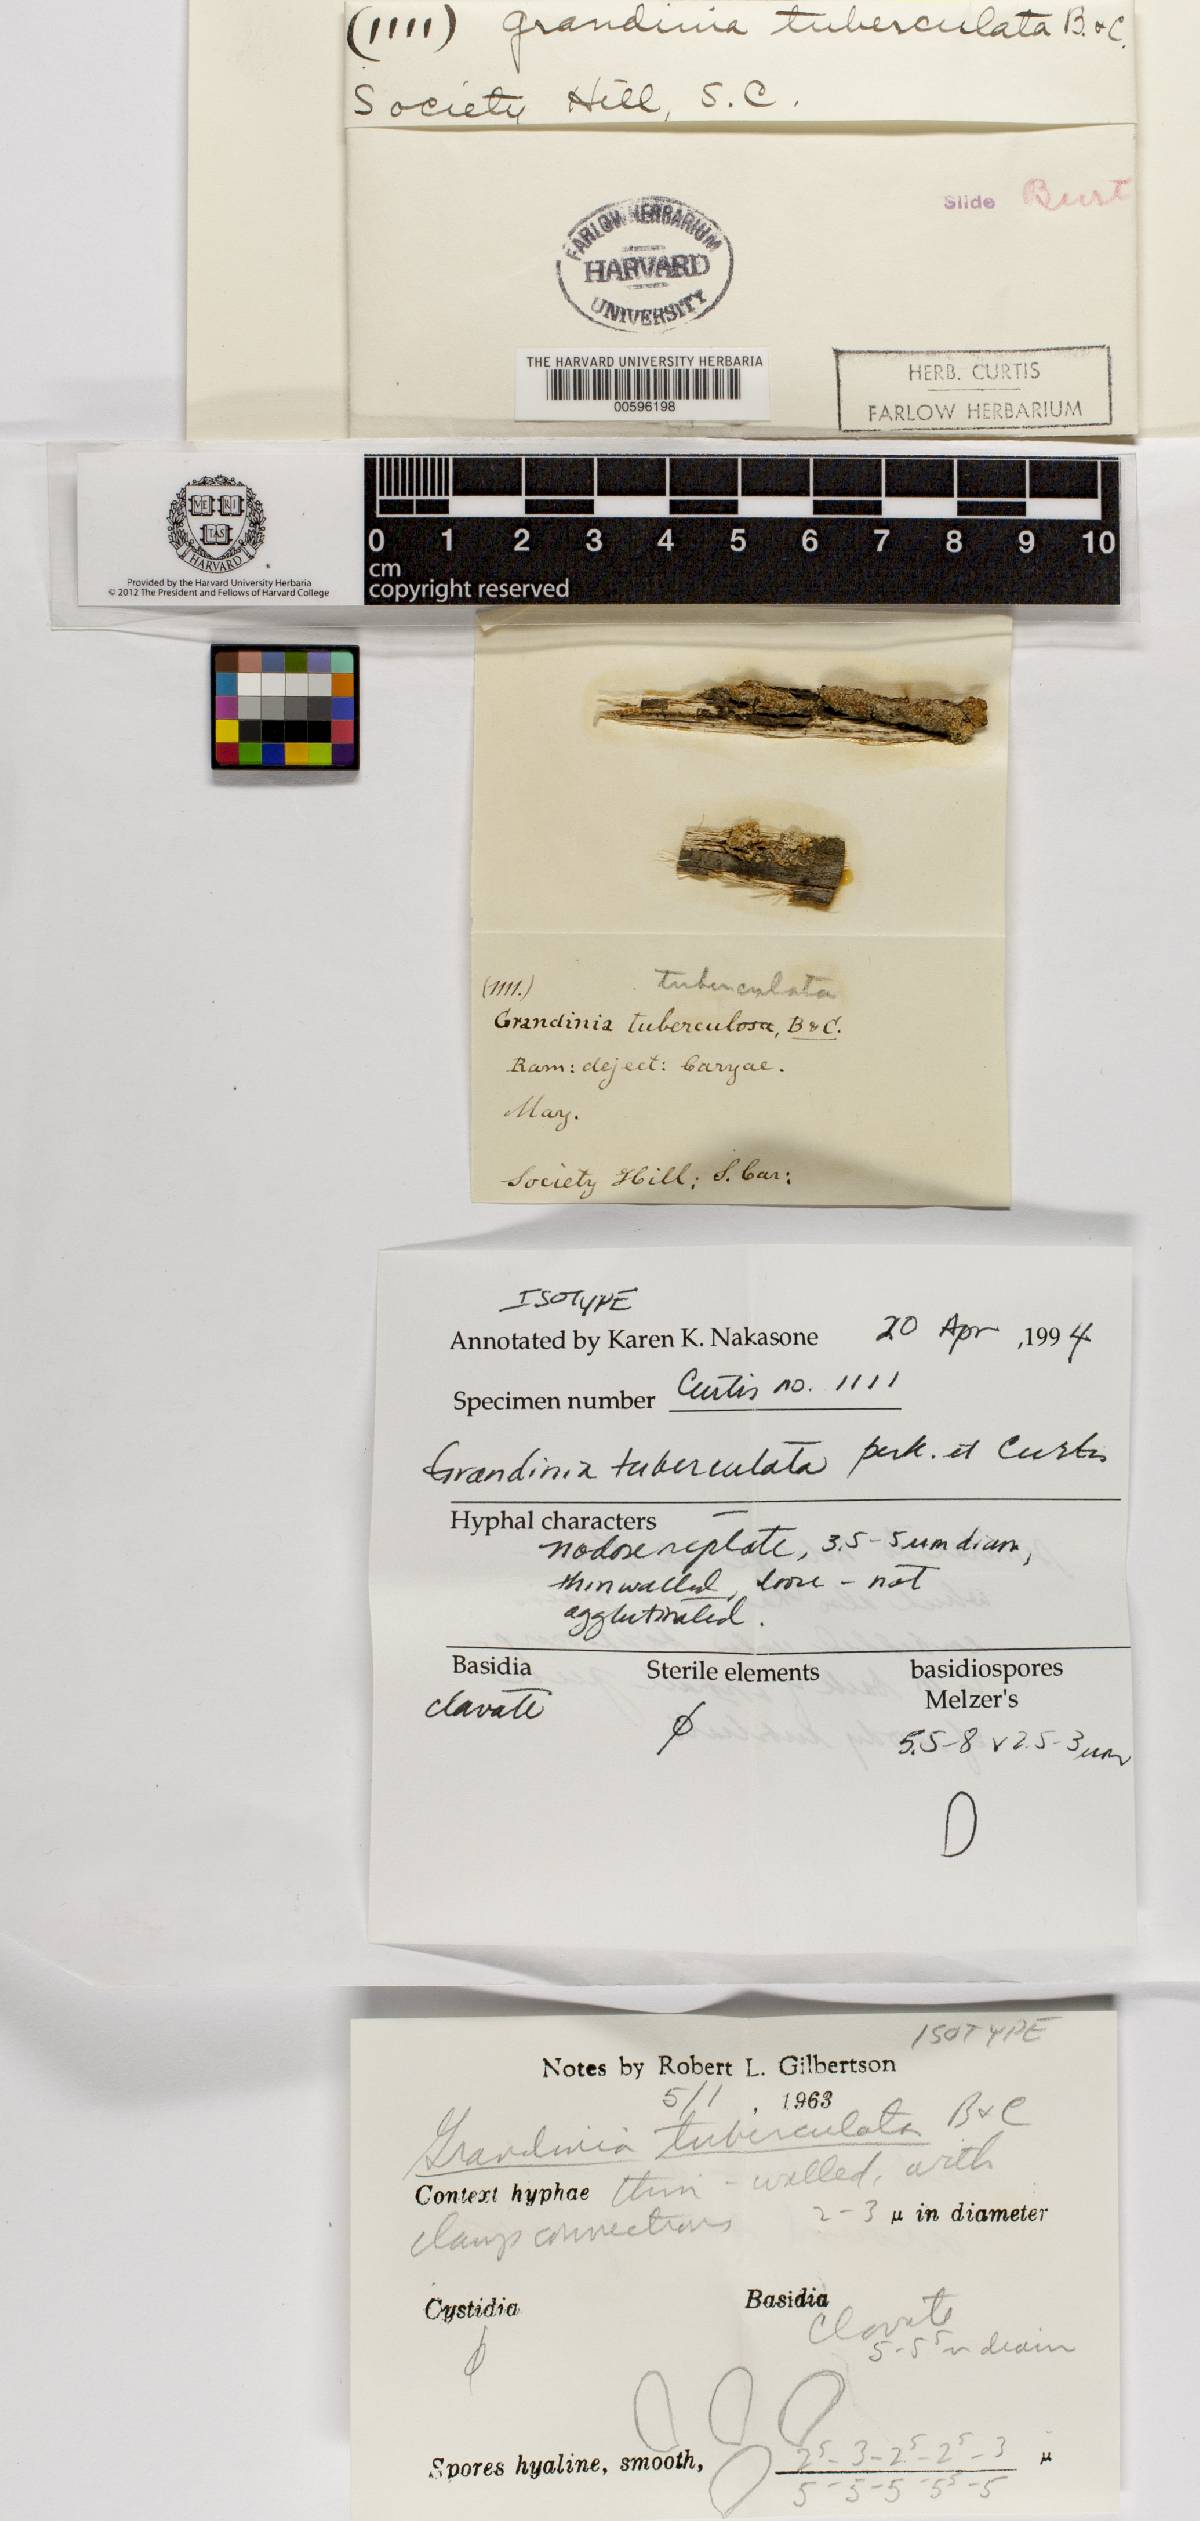 (1111) Grandinia tuberculata B. & C.
Society Hill, S.C.
Slide Burt
FARLOW HERBARIUM
HARVARD
UNIVERSITY
THE HARVARD UNIVERSITY HERBARIA
00596198
HERB. CURTIS
FARLOW HERBARIUM
ME RI
TAS
HARVARD
Provided by the Harvard University Herbaria
© 2012 The President and Fellows of Harvard College
0 1 2 3 4 5 6 7 8 9 10
cm
copyright reserved
(1111.) tuberculata
Grandinia tuberculosa, B & C.
Ram: deject: Caryae.
May.
Society Hill; S. Car:
ISOTYPE
Annotated by Karen K. Nakasone 20 Apr ,1994
Specimen number Curtis no. 1111
Grandinia tuberculata Berk. et Curtis
Hyphal characters
nodose septate, 3.5-5 um diam,
thinwalled, loose - not
agglutinated.
Basidia Sterile elements basidiospores
Melzer's
clavate ϕ 5.5-8 x 2.5-3 um
ISOTYPE
Notes by Robert L. Gilbertson
5/1 , 1963
Grandinia tuberculata B & C
Context hyphae thin-walled, with
clamp connections 2-3 μ in diameter
Cystidia Basidia
ϕ clavate
5-5⁵ μ diam
Spores hyaline, smooth, 2⁵-3-2⁵-2⁵-3 μ
5-5-5-5⁵-5